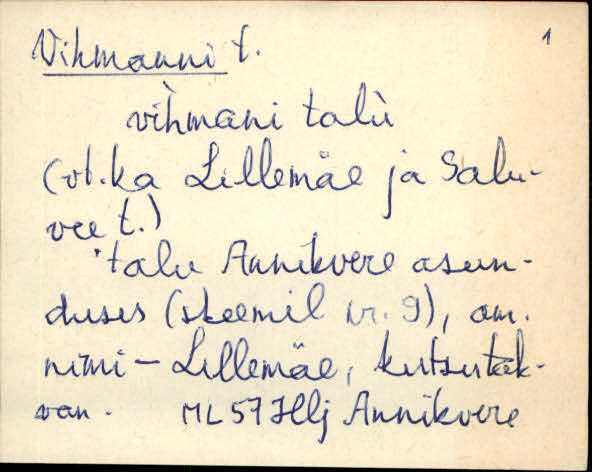 Vihmanni t. 1
vìhmani talù
(vt. ka Lillemäe ja Salu-
vee t.)
talu Annikvere asun-
duses (skeemil nr. 9), am.
nimi - Lillemäe, kutsutak-
van. ML 57 Hlj Annikvere